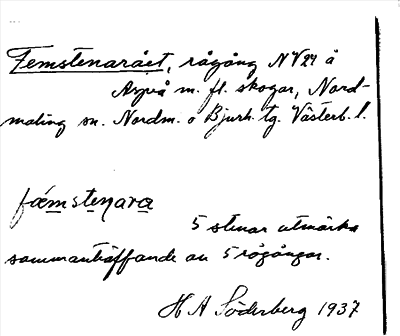 Femstenarået, rågång NV24 å
Aspå m. fl. skogar, Nord-
maling sn. Nordm. o Bjurh. tg. Västerb. l.
fæmstenara
5 stenar utmärka
sammanträffande av 5 rågångar.
H A Söderberg 1937